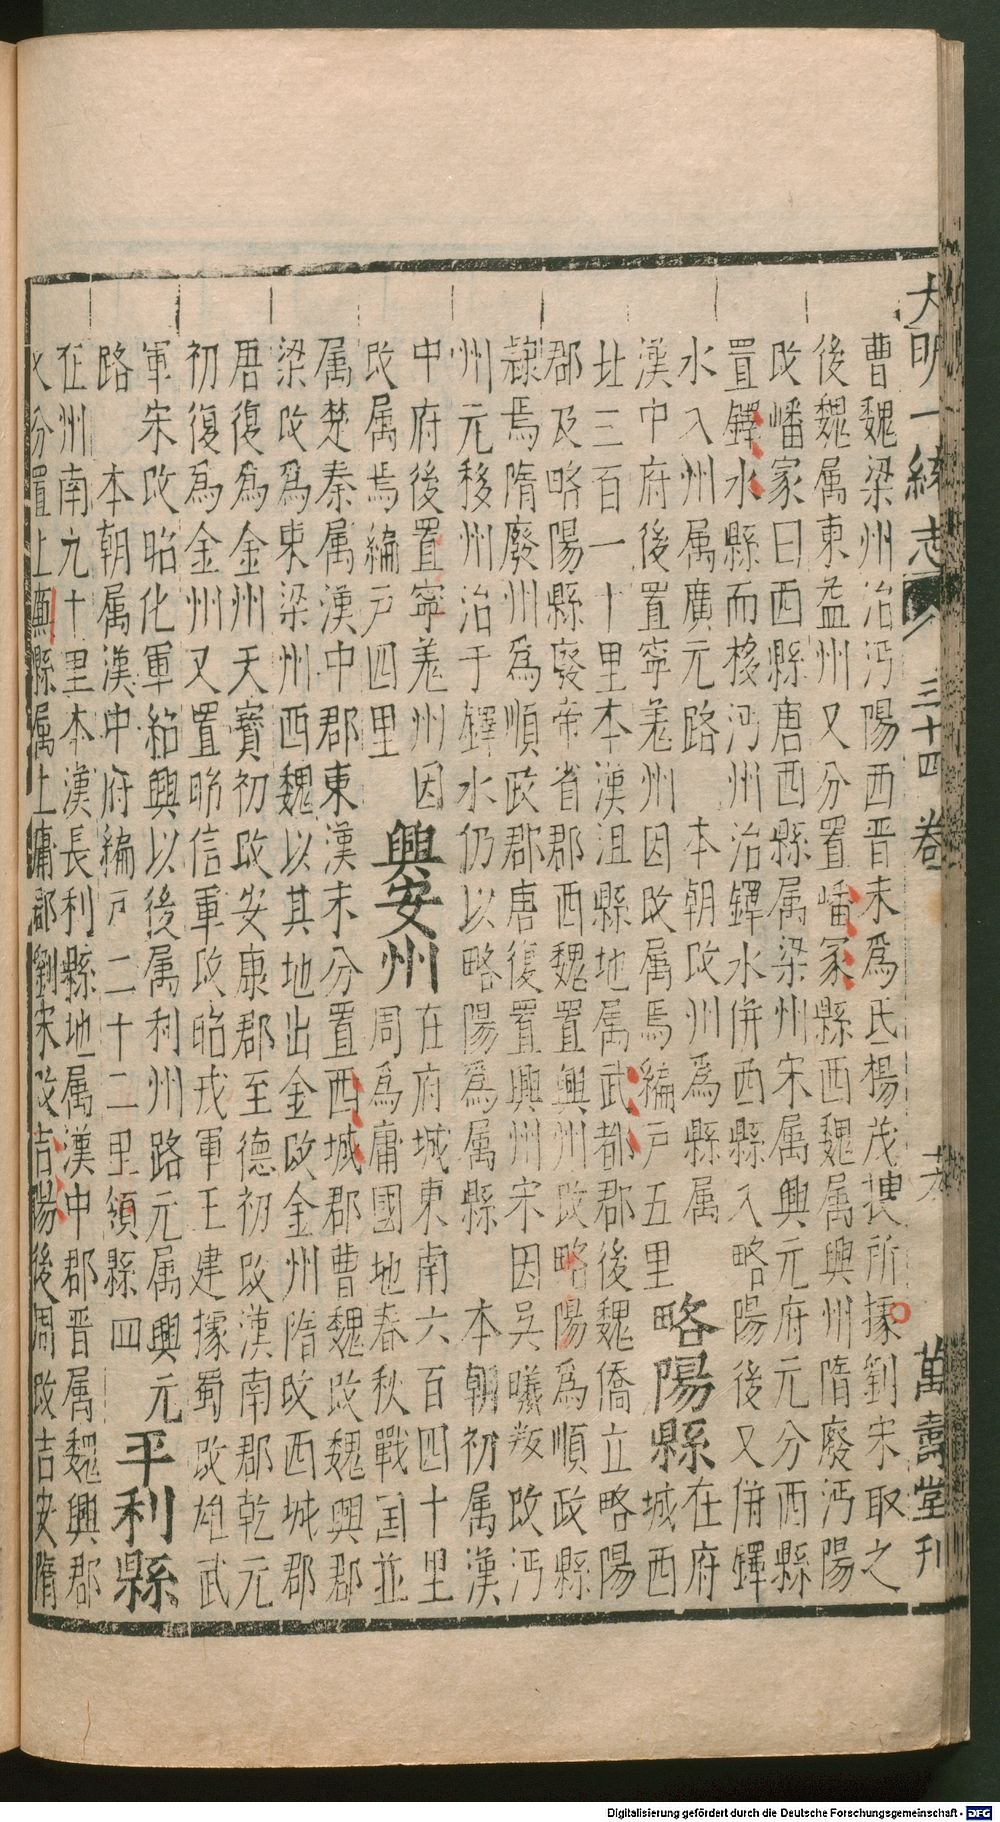 大明一統志 三十四卷 萬壽堂刊
曹魏梁州治沔陽西晉末爲氐楊茂搜所據劉宋取之
後魏属東益州又分置嶓冢縣西魏属興州隋廢沔陽
改嶓冢曰西縣唐西縣属梁州宋属興元府元分西縣
置鐸水縣而移沔州治鐸水併西縣入略陽後又併鐸
水入州属廣元路 本朝改州爲縣属
漢中府後置寧羗州因改属焉編戸五里 略陽縣 在府城西
北三百一十里本漢沮縣地属武都郡後魏僑立略陽
郡及略陽縣廢帝省郡西魏置興州改略陽爲順政縣
隸焉隋廢州爲順政郡唐復置興州宋因吳曦叛改沔
州元移州治于鐸水仍以略陽爲属縣 本朝初属漢
中府後置寧羗州因
改属焉編戸四里 興安州 在府城東南六百四十里
周爲庸國地春秋戰国並
属楚秦属漢中郡東漢末分置西城郡曹魏改魏興郡
梁改爲東梁州西魏以其地出金改金州隋改西城郡
唐復爲金州天寳初改安康郡至德初改漢南郡乾元
初復爲金州又置昭信軍改昭戎軍王建據蜀改雄武
軍宋改昭化軍紹興以後属利州路元属興元
路 本朝属漢中府編戸二十二里領縣四 平利縣
在州南九十里本漢長利縣地属漢中郡晉属魏興郡
又分置上廉縣属上庸郡劉宋改吉陽後周改吉安隋
Digitalisierung gefördert durch die Deutsche Forschungsgemeinschaft - DFG